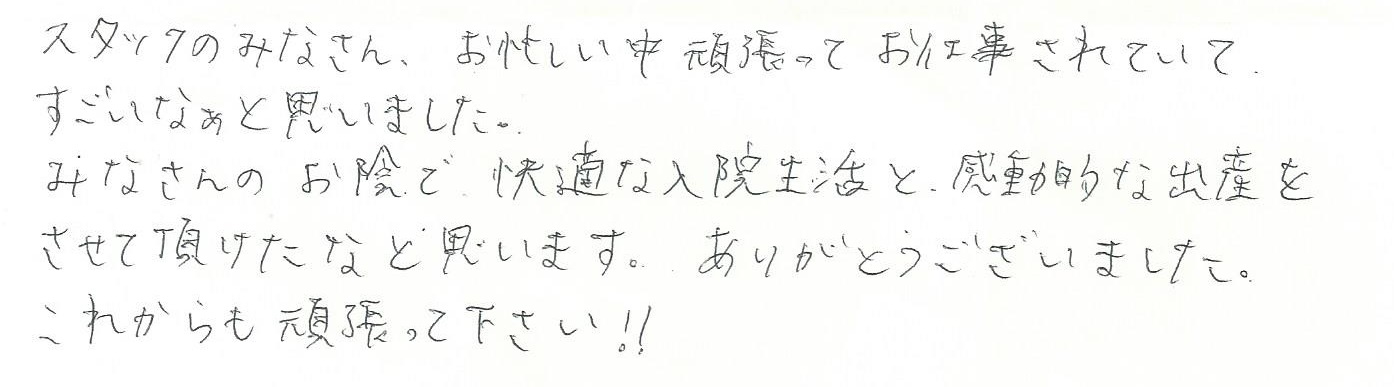 スタッフのみなさん、お忙しい中頑張ってお仕事されていて、
すごいなぁと思いました。
みなさんのお陰で、快適な入院生活と、感動的な出産を
させて頂けたなと思います。ありがとうございました。
これからも頑張って下さい!!